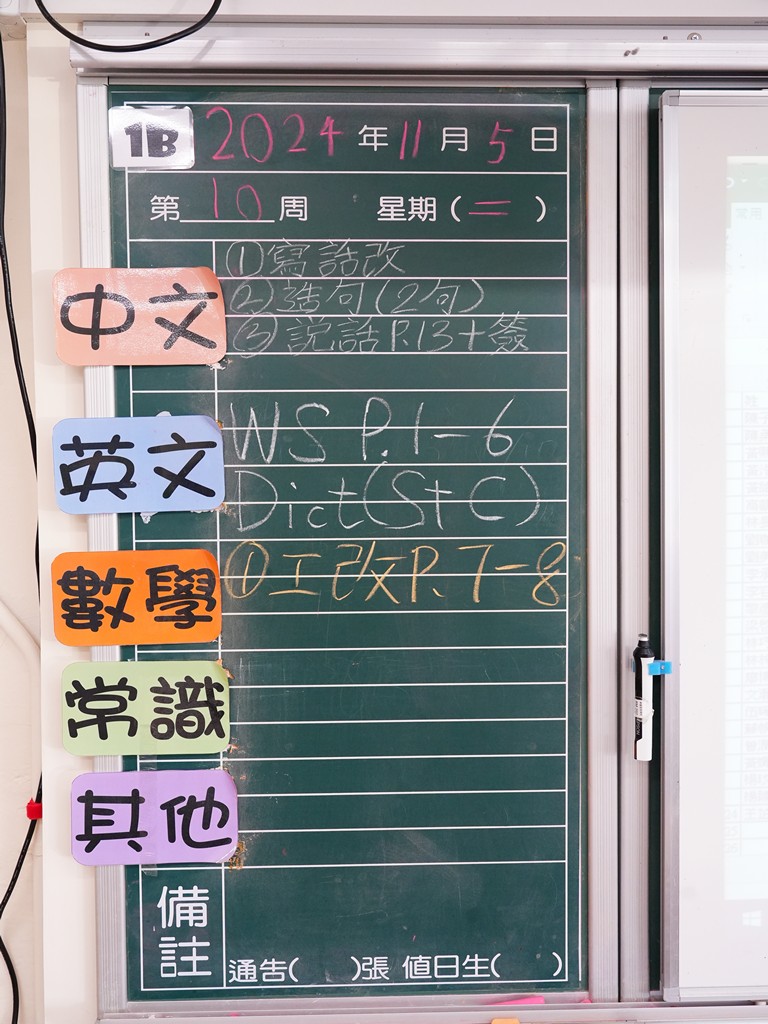 1B 2024年11月5日
第10周 星期(二)
中文
①寫話改
②造句(2句)
③説話P.13+簽
英文
WS P.1-6
Dict(St C)
數學
①工改P.7-8
常識
其他
備註
通告( )張 值日生( )